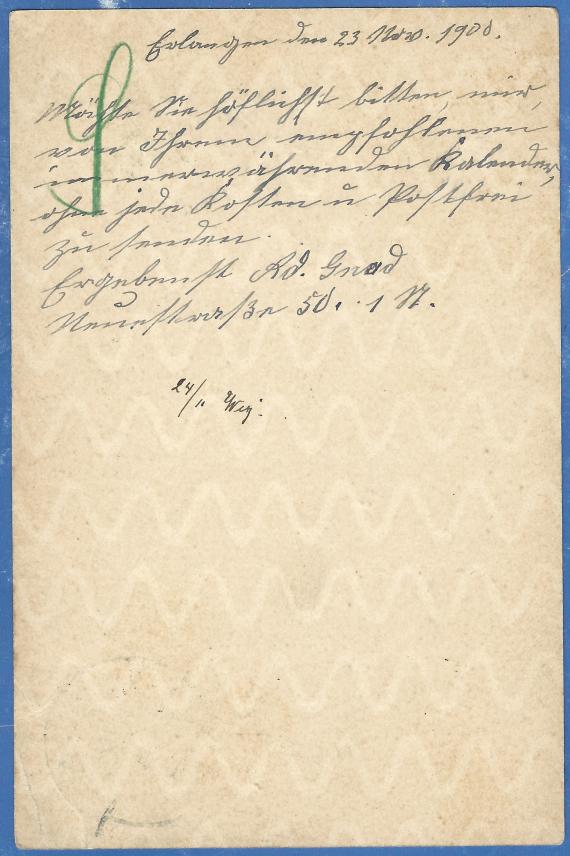 Erlangen den 23 Nov. 1900.
Möchte Sie höflichst bitten, mir,
von Ihrem empfohlenen
immerwährenden Kalender,
ohne jede Kosten u Postfrei
zu senden.
Ergebenst Ad. Gnad
Neuestraße 50. 1 St.
24/11